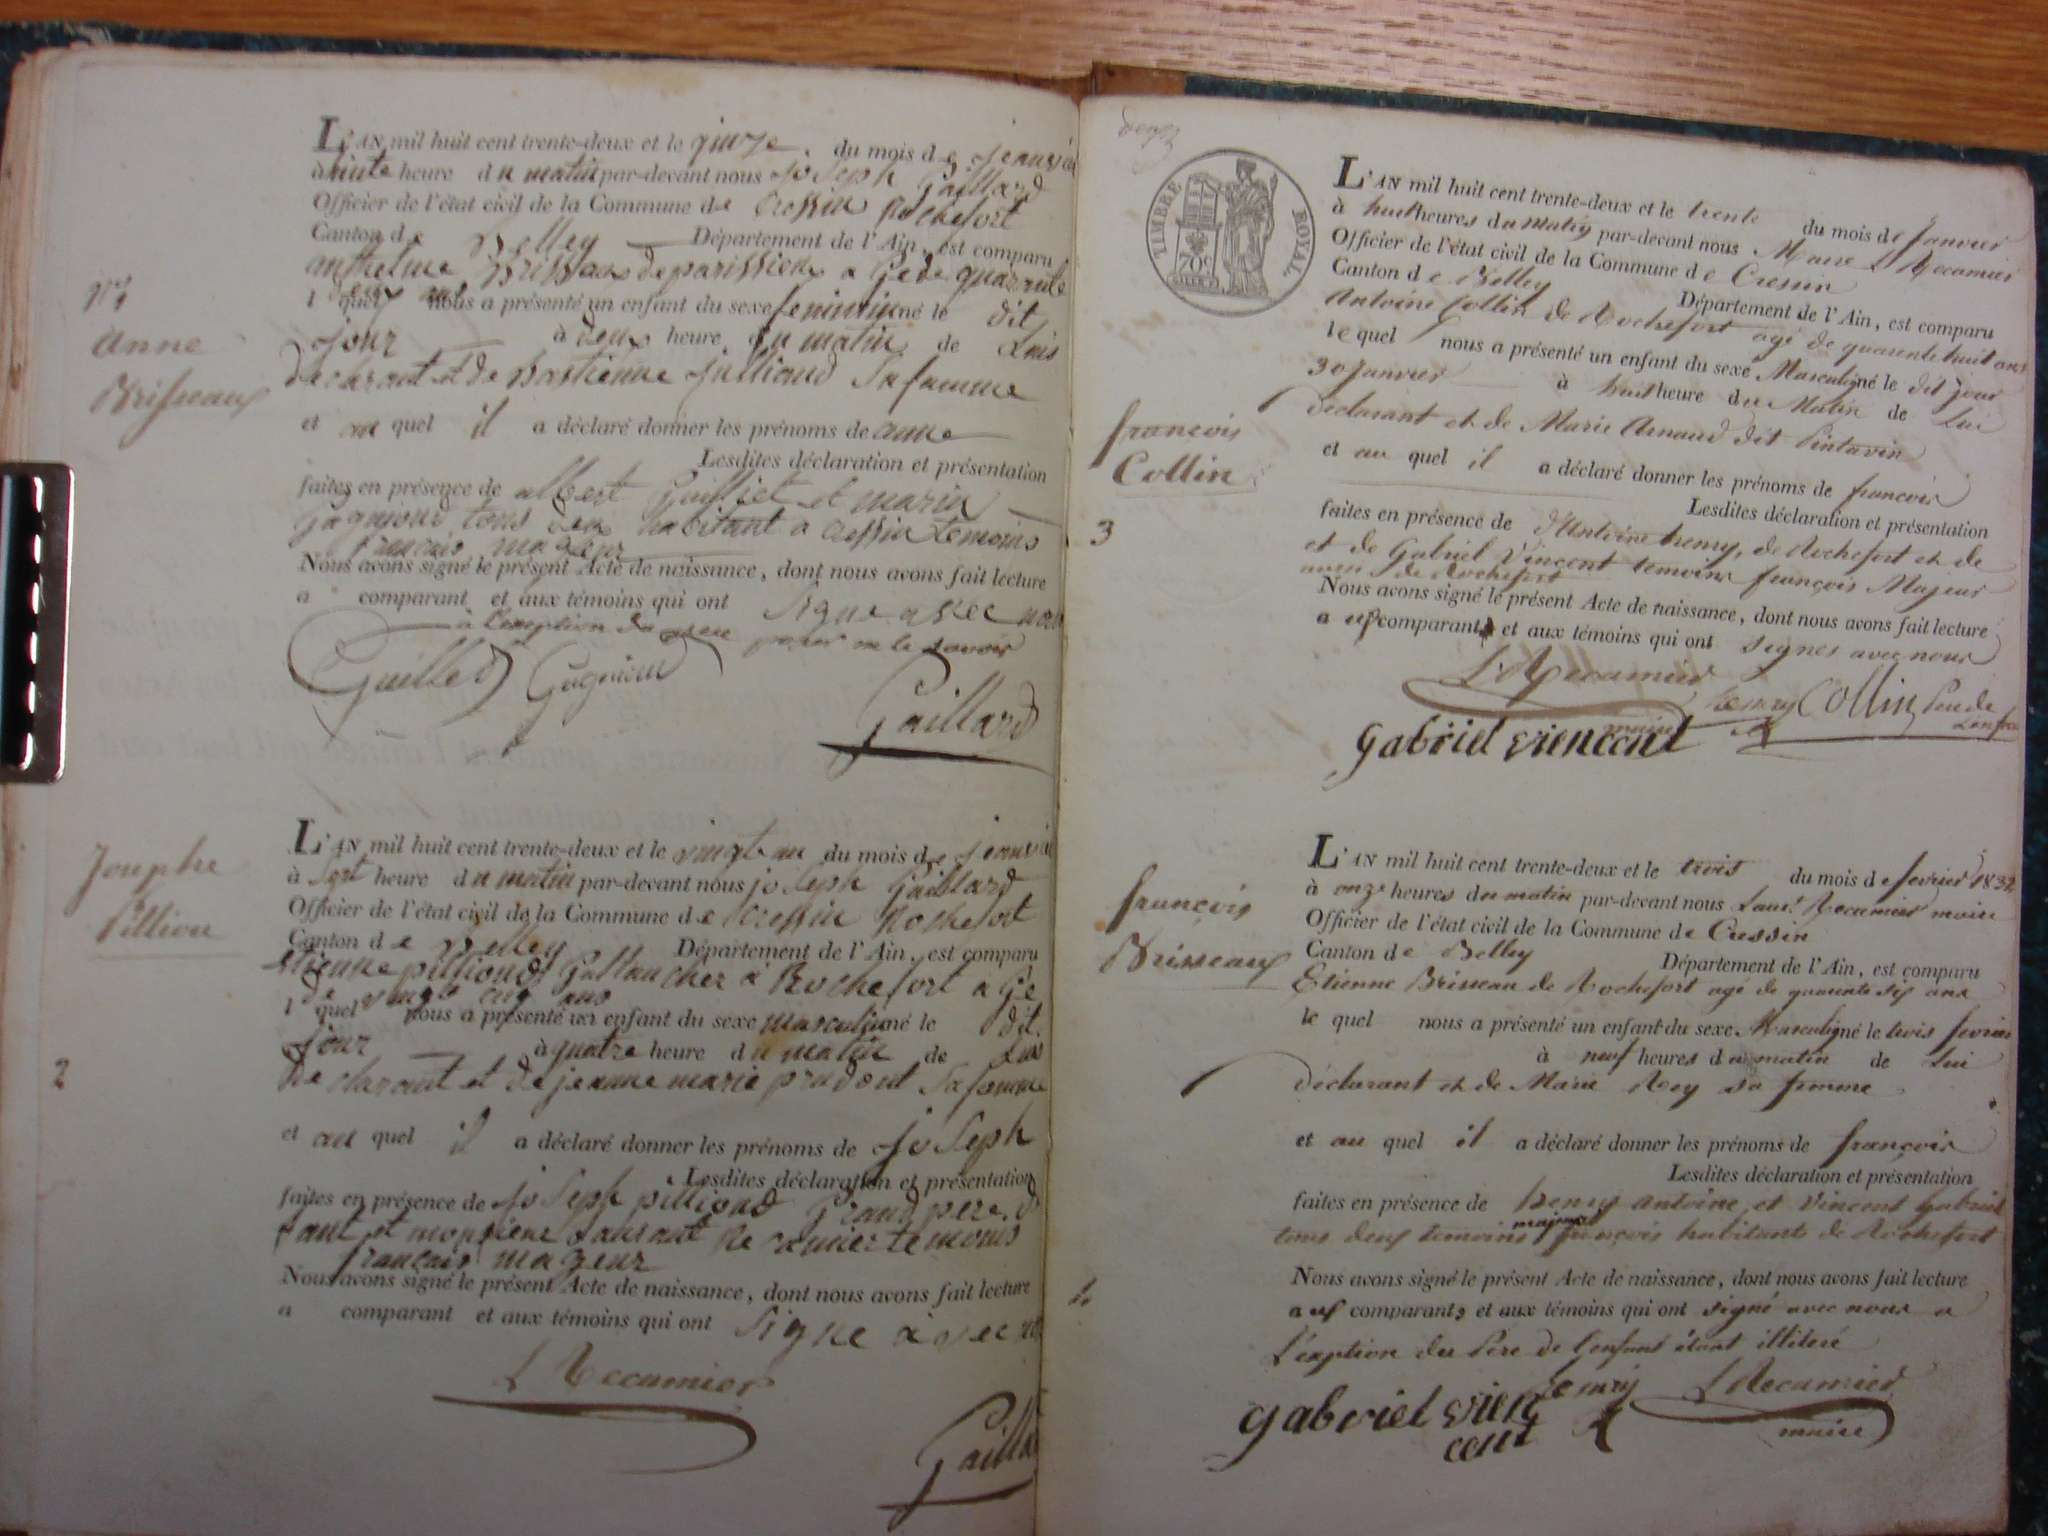 L'AN mil huit cent trente-deux et le quinze du mois de jeanvie
à huite heure du matin par-devant nous joSeph Gaillard
Officier de l'état civil de la Commune de Cressin Rochefort
Canton de Belley Département de l'Ain, est comparu
anthelme Brisseaux de parissieu a Gé de quarante
deux ans
l quel nous a présenté un enfant du sexe feminin né le dit
jour à deux heure du matin de Luis
declarant et de Bastienne julliand Safamme
et au quel il a déclaré donner les prénoms de anne
Lesdites déclaration et présentation
faites en présence de albert Guilliet et marin
Gagnieux tous deux habitant a Cressin temoins
francais mageur
Nous avons signé le présent Acte de naissance, dont nous avons fait lecture
a comparant et aux témoins qui ont Signe avec nous
à l'exeption du pere pour ne le savoir
Guillet Gagnieux
Gaillard
No 1
anne
Brisseaux
L'AN mil huit cent trente-deux et le vingt un du mois de jeanvie
à Sept heure du matin par-devant nous joSeph Gaillard
Officier de l'état civil de la Commune de Cressin Rochefort
Canton de Belley Département de l'Ain, est comparu
etienne pilliond Gallaucher à Rochefort a Gé
de vingt cinq ans
l quel nous a présenté un enfant du sexe masculin né le dit
jour à quatre heure du matin de Luis
declarant et de jeanne marie prudont Safamme
et au quel il a déclaré donner les prénoms de joSeph
Lesdites déclaration et présentation
faites en présence de joSeph pilliond Grand pere
et monsieur Laurant Recamier temoins
français mageur
Nous avons signé le présent Acte de naissance, dont nous avons fait lecture
a comparant et aux témoins qui ont Signe avec
L Recamier
Gailla
Jouphe
Pilliou
2
TIMBRE ROYAL
70c
L'AN mil huit cent trente-deux et le trente du mois de Janvier
à huit heures du matin par-devant nous Maire L Recamier
Officier de l'état civil de la Commune de Cressin
Canton de Belley Département de l'Ain, est comparu
Antoine Collin de Rochefort agé de quarente huit ans
le quel nous a présenté un enfant du sexe Masculin né le dit jour
30 Janvier à huit heure du Matin de Lui
déclarant et de Marie Arnaud dit Pintavin
et au quel il a déclaré donner les prénoms de françois
Lesdites déclaration et présentation
faites en présence de d'Antoine henry, de Rochefort et de
et de Gabriel Vincent temoins françois Majeur
aussi de Rochefort
Nous avons signé le présent Acte de naissance, dont nous avons fait lecture
a ux comparants et aux témoins qui ont signes avec nous
L Recamier
maire
henry Collin Peu de Lenfan
gabriel viencent
françois
Collin
3
L'AN mil huit cent trente-deux et le trois du mois de fevrier 1832
à onze heures du matin par-devant nous Laut. Recamier maire
Officier de l'état civil de la Commune de Cressin
Canton de Belley Département de l'Ain, est comparu
Etienne Brisseau de Rochefort agé de quarente six ans
le quel nous a présenté un enfant du sexe Masculin né le trois fevrier
à neuf heures du matin de Lui
déclarant et de Marie Rey sa femme
et au quel il a déclaré donner les prénoms de françois
Lesdites déclaration et présentation
faites en présence de henry antoine et Vincent gabriel
tous deux temoins majeur françois habitants de Rochefort
Nous avons signé le présent Acte de naissance, dont nous avons fait lecture
a ux comparants et aux témoins qui ont signé avec nous a
L'exption du Pere de l'enfant étant illiteré
henry L Recamier
maire
gabriel vien
cent
françois
Brisseaux
4